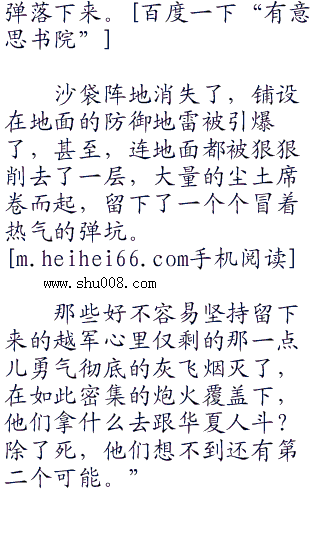 弹落下来。[百度一下“有意
思书院”]
沙袋阵地消失了，铺设
在地面的防御地雷被引爆
了，甚至，连地面都被狠狠
削去了一层，大量的尘土席
卷而起，留下了一个个冒着
热气的弹坑。
[m.heihei66.com手机阅读]
www.shu008.com
那些好不容易坚持留下
来的越军心里仅剩的那一点
儿勇气彻底的灰飞烟灭了，
在如此密集的炮火覆盖下，
他们拿什么去跟华夏人斗？
除了死，他们想不到还有第
二个可能。”